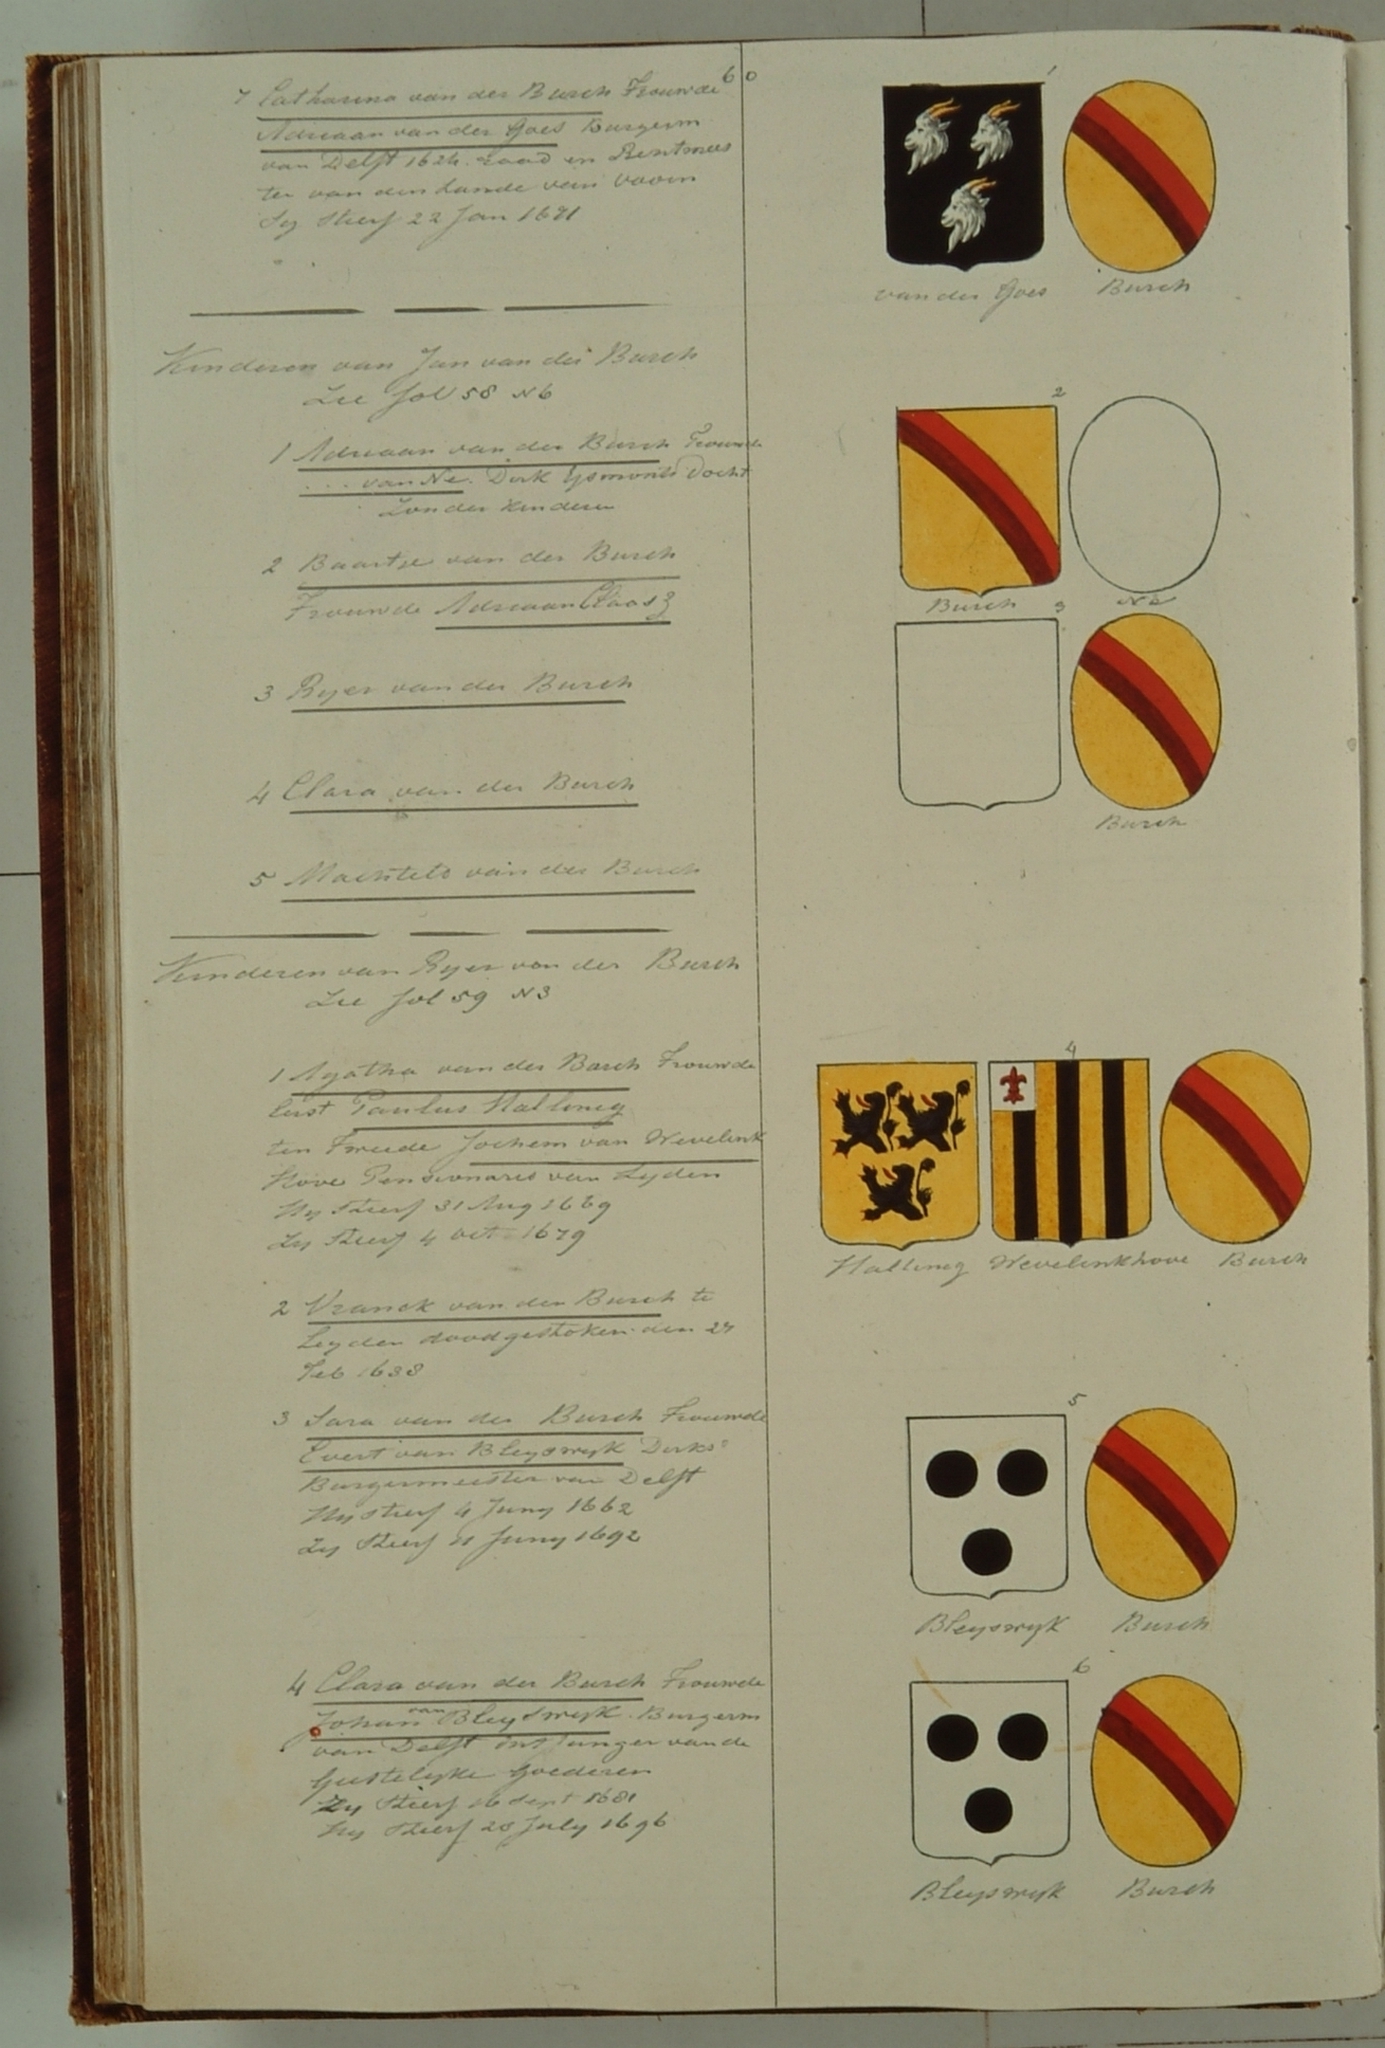 60
7 Catharina van der Burch Trouwde
Adriaan van der Goes Burgerm
van Delft 1624. raad en Rentmees
ter van den Lande van Voorn
Sy Stierf 22 Jan 1671
Kinderen van Jan van der Burch
Zie fol 58 N 6
1 Adriaan van der Burch Trouwde
... van Ne. Dirk Ysmonds Docht
Zonder Kinderen
2 Baartje van der Burch
Trouwde Adriaan Claasz
3 Ryer van der Burch
4 Clara van der Burch
5 Machteld van der Burch
Kinderen van Ryer van der Burch
Zie fol 59 N 3
1 Agatha van der Burch Trouwde
Eerst Paulus Halling
ten Tweede Jochem van Wevelink
Hove Pensionaris van Lyden
Hy Stierf 31 Aug 1669
Zy Stierf 4 Oct 1679
2 Vranck van der Burch te
Leyden dood gestoken den 27
Feb 1638
3 Sara van der Burch Trouwde
Evert van Bleyswyk Dirks
Burgermeester van Delft
Hy stierf 4 Juny 1662
Zy Stierf 11 Juny 1692
4 Clara van der Burch Trouwde
Johan van Bleyswyk. Burgerm
van Delft ontfanger van de
Geestelyke Goederen
Zy Stierf 16 Sept 1681
Hy Stierf 28 July 1696
1
van der Goes Burch
2
Burch Ne
3
Burch
4
Halling Wevelinkhove Burch
5
Bleyswyk Burch
6
Bleyswyk Burch